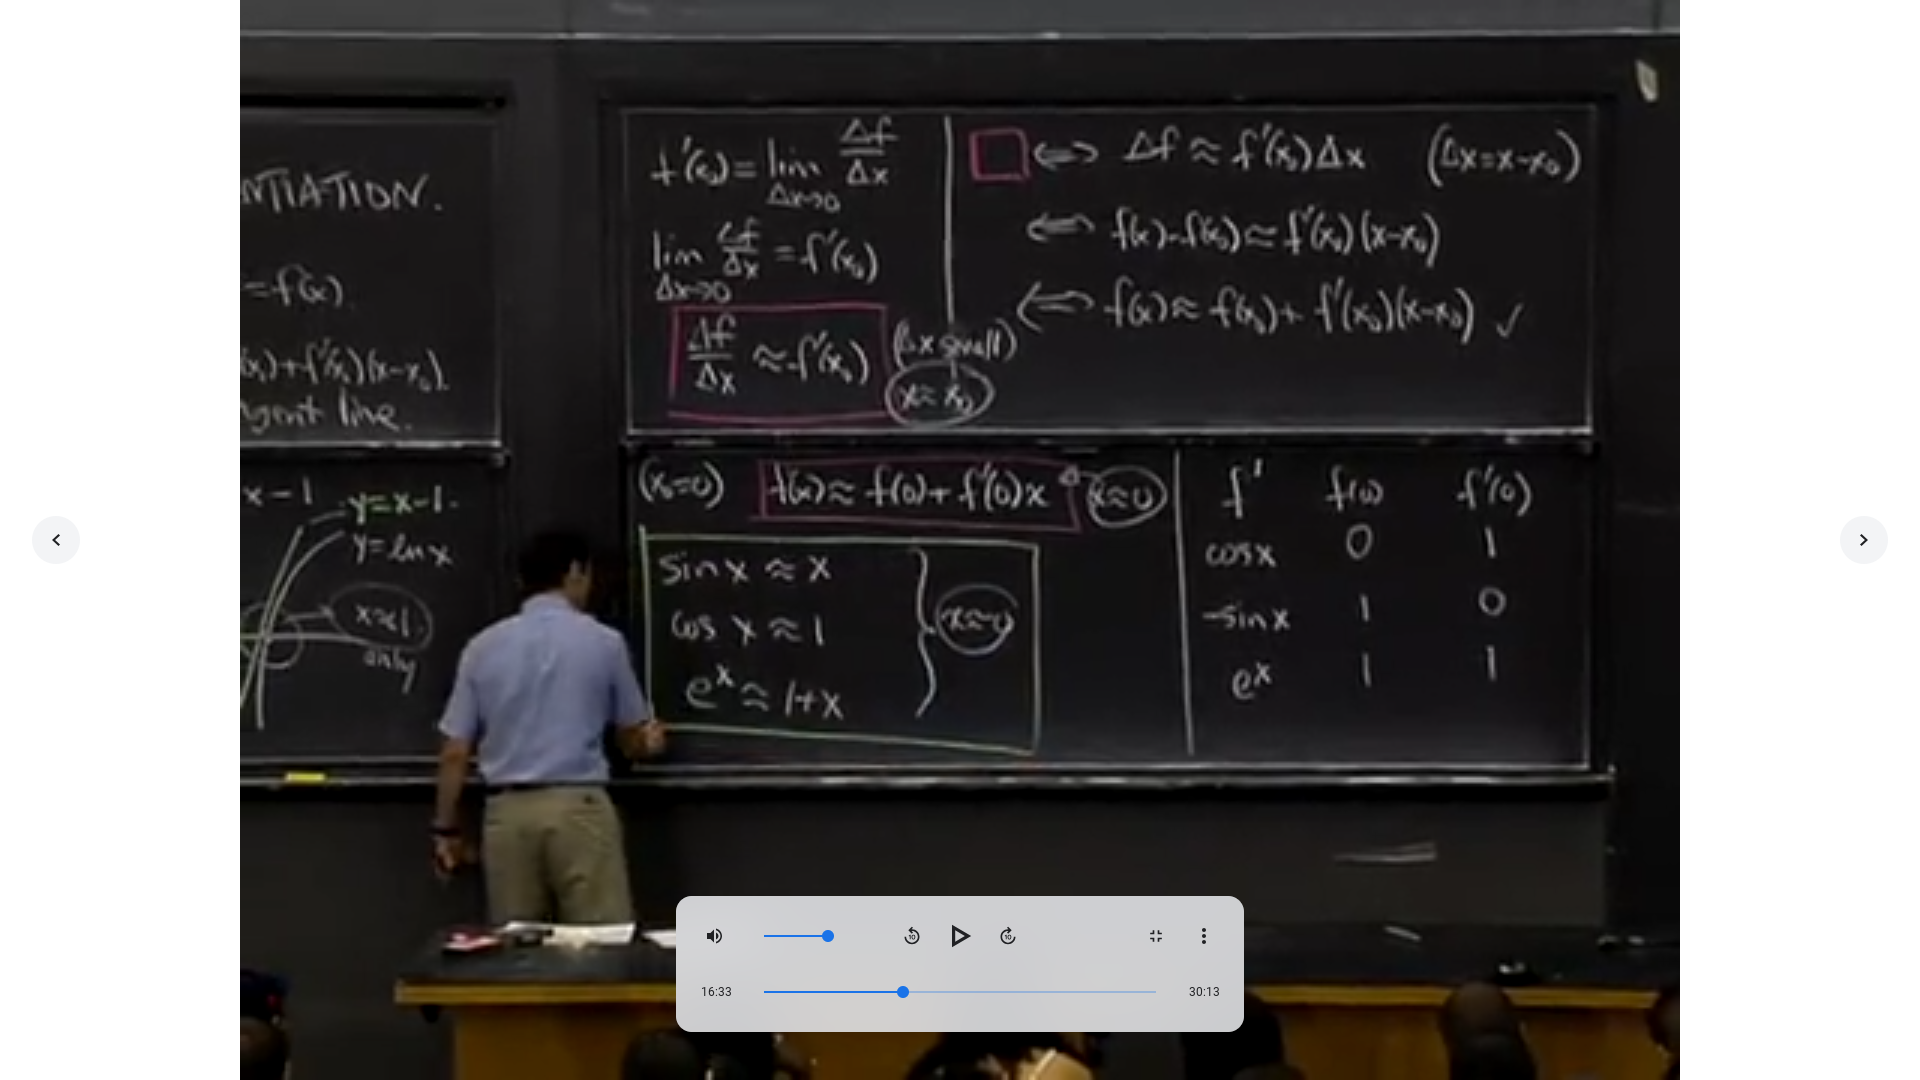 NTIATION.
=f(x).
(x₀)+f'(x₀)(x-x₀).
gent line.
x-1
y=x-1.
y=ln x
x≈1.
only
f'(x₀)=lim Δx→0 Δf/Δx
lim Δx→0 Δf/Δx =f'(x₀)
Δf/Δx ≈ f'(x₀) (Δx small)
x≈x₀
□ ⟺ Δf ≈ f'(x₀)Δx (Δx=x-x₀)
⟺ f(x)-f(x₀)≈f'(x₀)(x-x₀)
⟺ f(x)≈ f(x₀)+ f'(x₀)(x-x₀) ✓
(x₀=0) f(x)≈ f(0)+ f'(0)x x≈0
sin x ≈ x
cos x ≈ 1
eˣ ≈ 1+x
x≈0
f' f(0) f'(0)
cos x 0 1
-sin x 1 0
eˣ 1 1
16:33
30:13